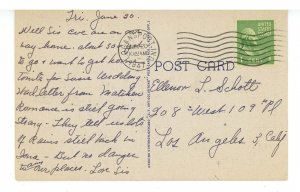 Fri, June 20.
Well Sis Eve are on our
way home. about 50
to go & want to get home
tonite for Susie Wedding.
Had letter from
Romance is still going
strong - They tell us lots
of Rains still back in
- But no danger
to Our places. Love Sis
POST CARD
UNITED STATES
POSTAGE
1 CENT
Ellenor L. Schott
908 - West 109th Pl
Los Angeles, Calif